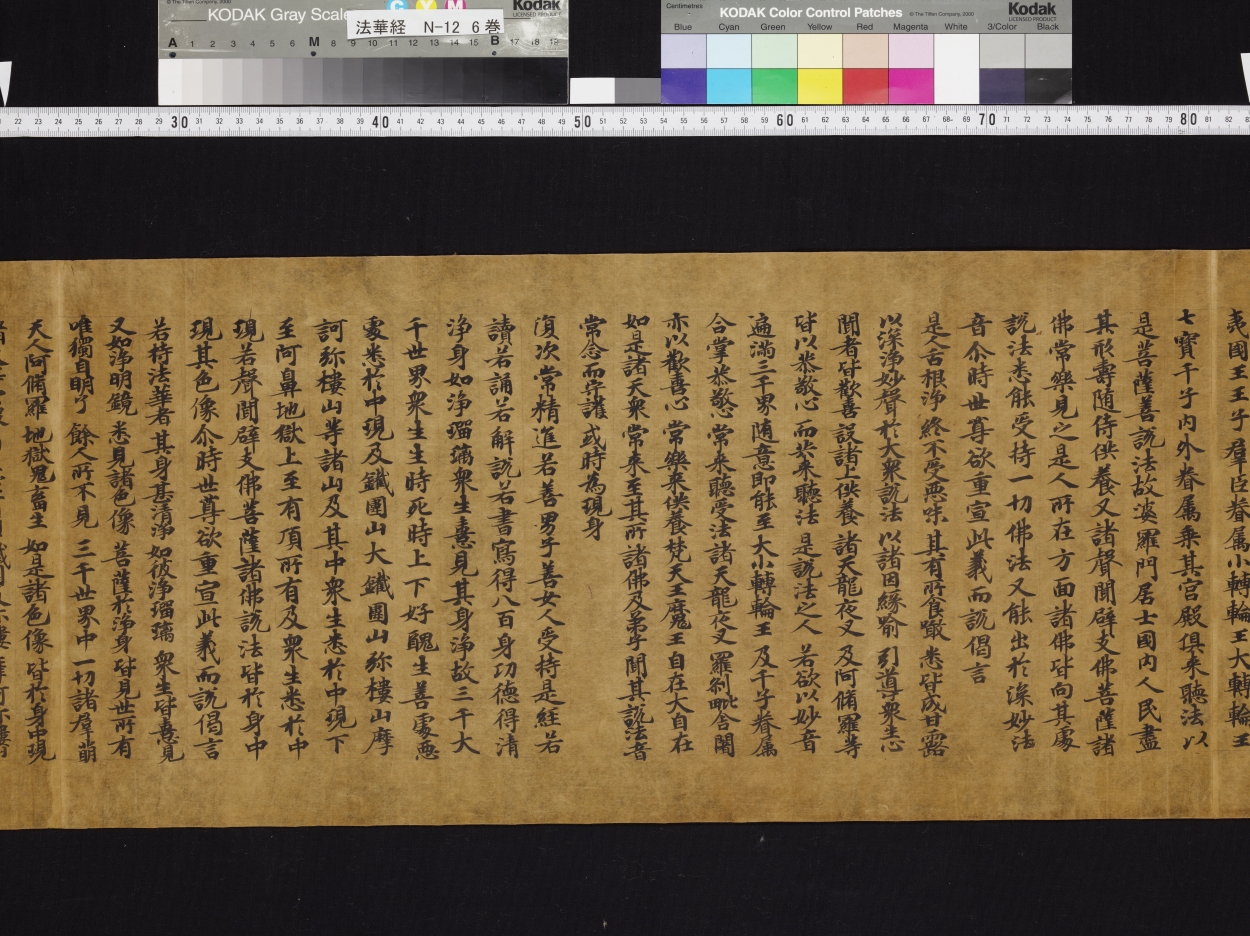 © The Tiffen Company, 2000
KODAK Gray Scale
C Y M
Kodak
LICENSED PRODUCT
法華経 N-12 6巻
A 1 2 3 4 5 6 M 8 9 10 11 12 13 14 15 B 17 18 19
Centimetres
KODAK Color Control Patches
© The Tiffen Company, 2000
Kodak
LICENSED PRODUCT
Blue Cyan Green Yellow Red Magenta White 3/Color Black
22 23 24 25 26 27 28 29 30 31 32 33 34 35 36 37 38 39 40 41 42 43 44 45 46 47 48 49 50 51 52 53 54 55 56 57 58 59 60 61 62 63 64 65 66 67 68 69 70 71 72 73 74 75 76 77 78 79 80 81 82
夷國王王子群臣眷属小轉輪王大轉輪王
七寶千子内外眷属乗其宮殿俱来聽法以
是菩薩善説法故婆羅門居士國内人民盡
其形壽随侍供養又諸聲聞辟支佛菩薩諸
佛常樂見之是人所在方面諸佛皆向其處
説法悉能受持一切佛法又能出於深妙法
音尒時世尊欲重宣此義而説偈言
是人舌根浄 終不受惡味 其有所食噉 悉皆成甘露
以深浄妙聲 於大衆説法 以諸因緣喻 引導衆生心
聞者皆歡喜 設諸上供養 諸天龍夜叉 及阿脩羅等
皆以恭敬心 而共来聽法 是説法之人 若欲以妙音
遍滿三千界 随意即能至 大小轉輪王 及千子眷属
合掌恭敬心 常来聽受法 諸天龍夜叉 羅刹毗舍闍
亦以歡喜心 常樂来供養 梵天王魔王 自在大自在
如是諸天衆 常来至其所 諸佛及弟子 聞其説法音
常念而守護 或時為現身
復次常精進若善男子善女人受持是經若
讀若誦若解説若書寫得八百身功德得清
浄身如浄瑠璃衆生憙見其身浄故三千大
千世界衆生生時死時上下好醜生善處惡
處悉於中現及鐵圍山大鐵圍山弥樓山摩
訶弥樓山等諸山及其中衆生悉於中現下
至阿鼻地獄上至有頂所有及衆生悉於中
現若聲聞辟支佛菩薩諸佛説法皆於身中
現其色像尒時世尊欲重宣此義而説偈言
若持法華者 其身甚清浄 如彼浄瑠璃 衆生皆憙見
又如浄明鏡 悉見諸色像 菩薩於浄身 皆見世所有
唯獨自明了 餘人所不見 三千世界中 一切諸群萌
天人阿脩羅 地獄鬼畜生 如是諸色像 皆於身中現